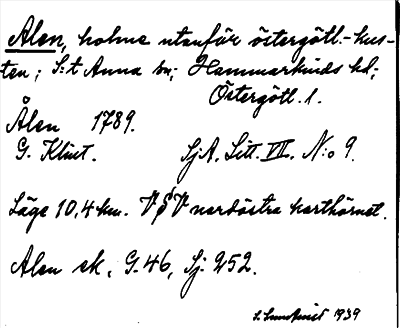 Alen, holme utanför östergötl.-kus-
ten; S:t Anna sn; Hammarkinds hd;
Östergötl. l.
Ålen 1789.
G. Klint. SjA. Litt. VII. N:o 9.
Läge 10,4 km. VSV nordöstra karthörnet.
Alen ek, G. 46, Sj. 252.
S. Sundqvist 1939